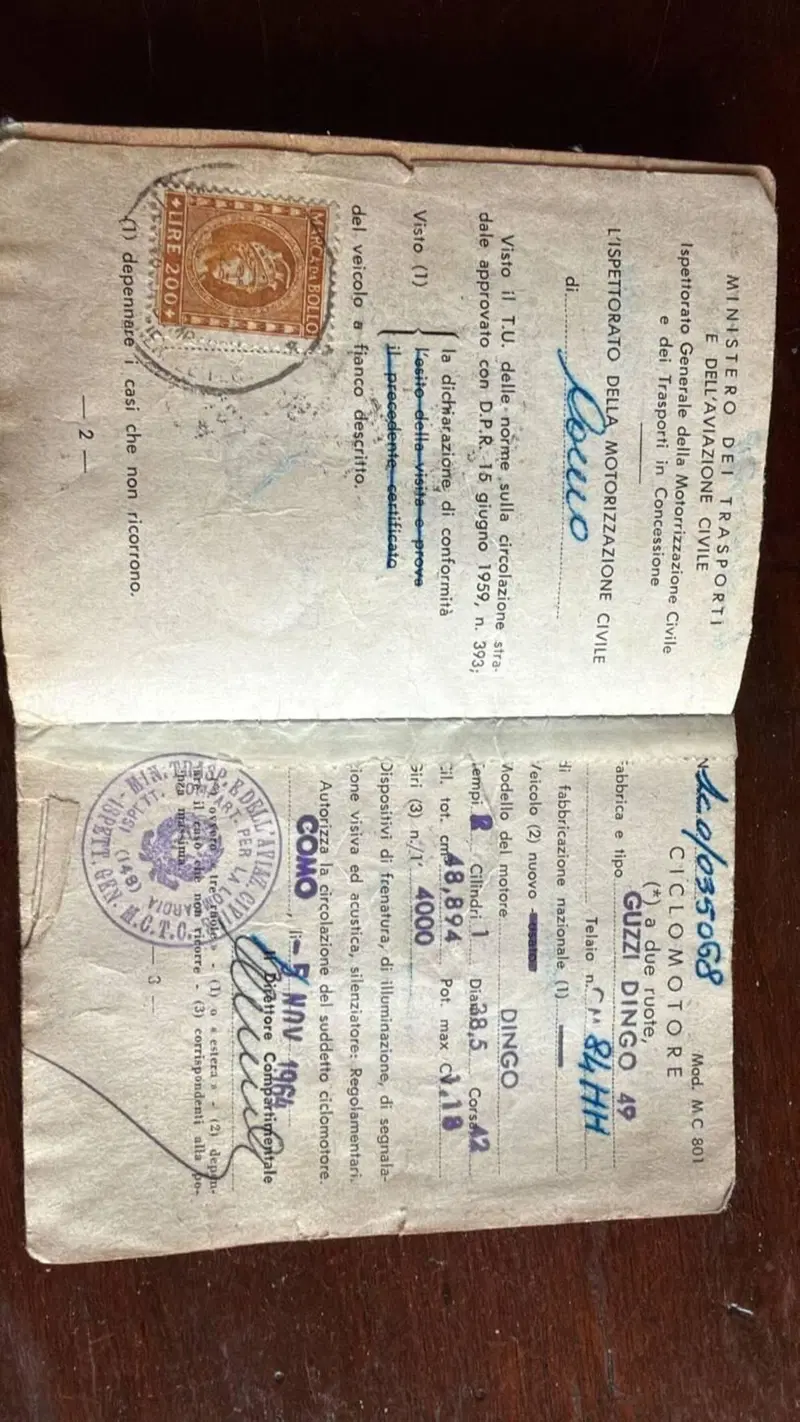 MINISTERO DEI TRASPORTI
E DELL'AVIAZIONE CIVILE
Ispettorato Generale della Motorrizzazione Civile
e dei Trasporti in Concessione
L'ISPETTORATO DELLA MOTORIZZAZIONE CIVILE
di Como
Visto il T.U. delle norme sulla circolazione stra-
dale approvato con D.P.R. 15 giugno 1959, n. 393;
Visto (1)
la dichiarazione di conformità
l'esito della visita e prova
il precedente certificato
del veicolo a fianco descritto.
MARCA DA BOLLO
LIRE 200
(1) depennare i casi che non ricorrono.
— 2 —
Mod. M C 801
035068
CICLOMOTORE
(*) a due ruote,
Fabbrica e tipo GUZZI DINGO 49
Telaio n. 84HH
di fabbricazione nazionale (1)
Veicolo (2) nuovo
Modello del motore DINGO
Tempi 2 Cilindri 1 Diam 38,5 Corsa 42
Cil. tot. cm³ 48,894 Pot. max CV 1,18
Giri (3) n./1' 4000
Dispositivi di frenatura, di illuminazione, di segnala-
zione visiva ed acustica, silenziatore: Regolamentari.
Autorizza la circolazione del suddetto ciclomotore.
COMO, lì - 5 NOV 1964
Il Direttore Compartimentale
MIN. TRASP. E DELL'AVIAZ. CIVILE
ISPETT. GEN. M.C.T.C.
(148)
(*) ovvero « tre ruote » - (1) o « estera » - (2) depen-
nare il caso che non ricorre - (3) corrispondenti alla po-
tenza massima
— 3 —